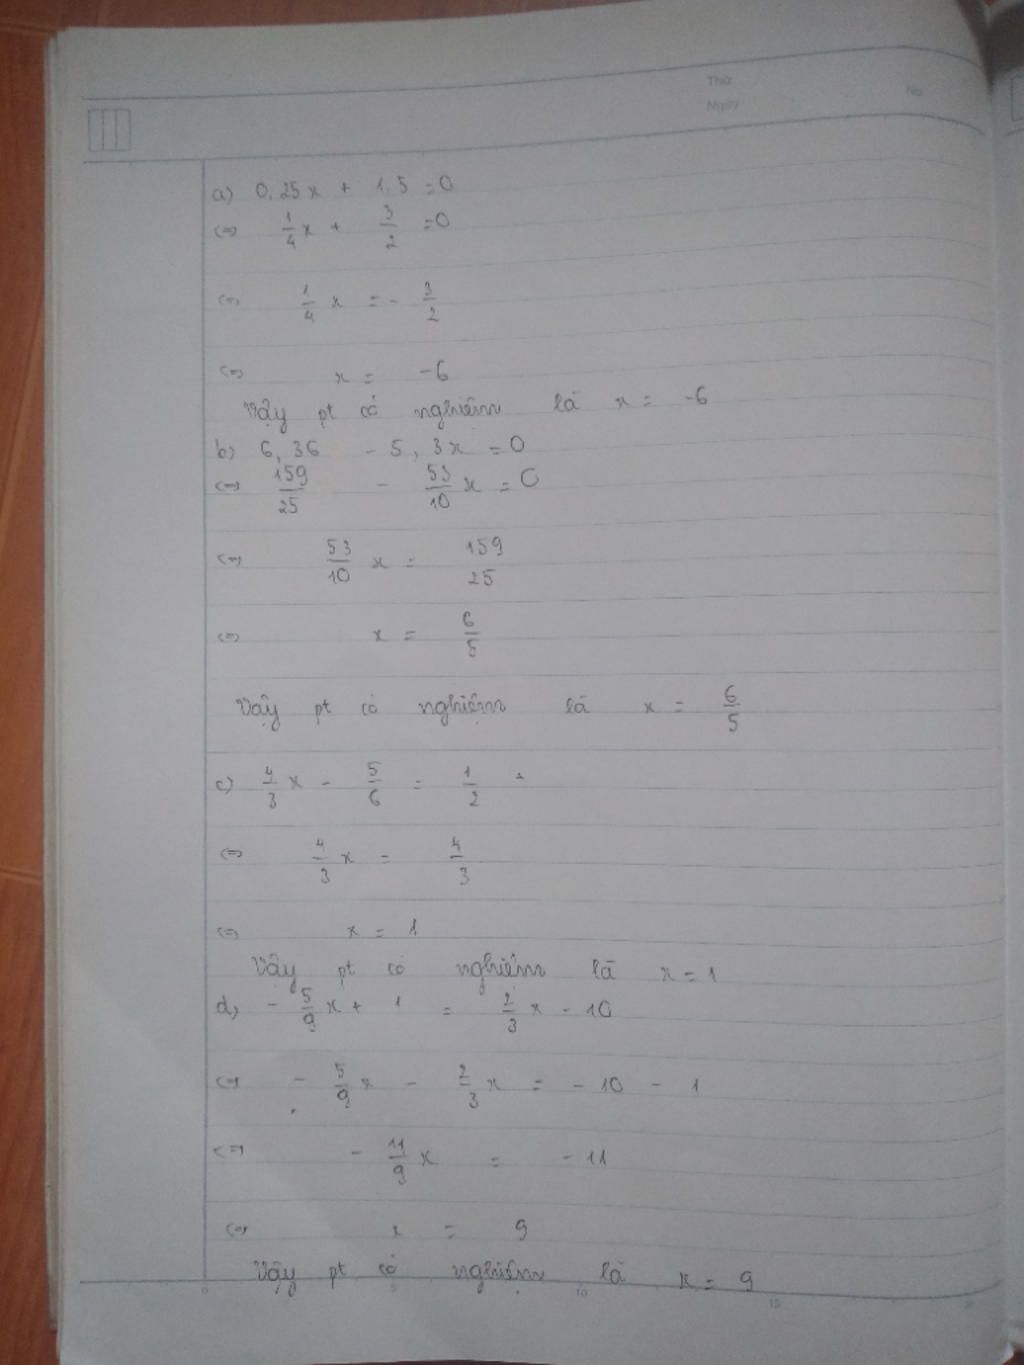 Thứ
Ngày No
a) 0,25x + 1,5 = 0
<=> 1/4 x + 3/2 = 0
<=> 1/4 x = - 3/2
<=> x = -6
Vậy pt có nghiệm là x = -6
b) 6,36 - 5,3x = 0
<=> 159/25 - 53/10 x = 0
<=> 53/10 x = 159/25
<=> x = 6/5
Vậy pt có nghiệm là x = 6/5
c) 4/3 x - 5/6 = 1/2
<=> 4/3 x = 4/3
<=> x = 1
Vậy pt có nghiệm là x = 1
d) - 5/9 x + 1 = 2/3 x - 10
<=> - 5/9 x - 2/3 x = - 10 - 1
<=> - 11/9 x = - 11
<=> x = 9
Vậy pt có nghiệm là x = 9
0 5 10 15 20